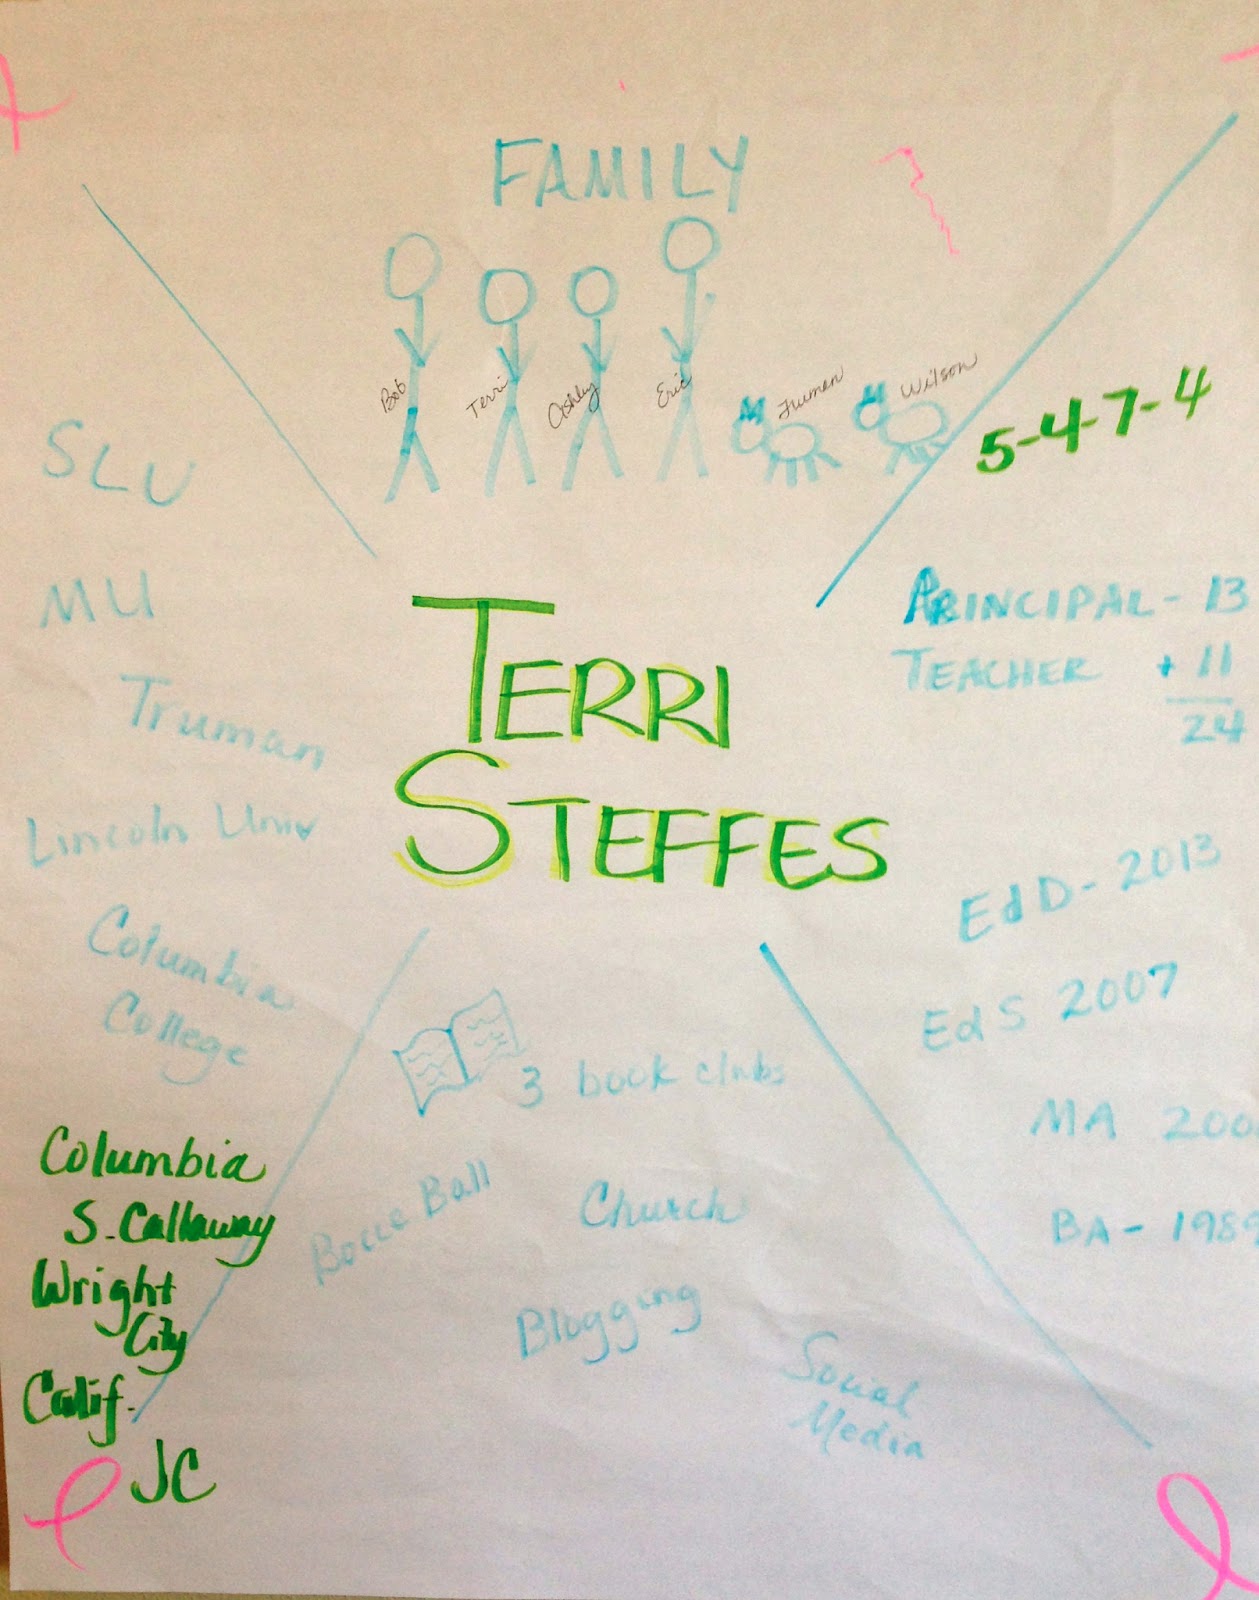 FAMILY
Bob
Terri
Ashley
Eric
Truman
Wilson
SLU
MU
Truman
Lincoln Univ
Columbia
College
Columbia
S. Callaway
Wright
City
Calif.
JC
TERRI
STEFFES
5-4-7-4
PRINCIPAL - 13
TEACHER + 11
24
EdD - 2013
EdS 2007
MA 200
BA - 1989
3 book clubs
Bocce Ball
Church
Blogging
Social
Media